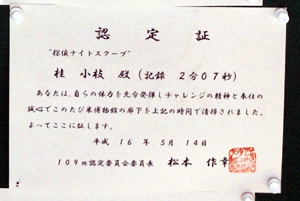 認定証
"探偵ナイトスクープ"
桂 小枝 殿（記録 2分07秒）
あなたは、自らの体力を充分発揮しチャレンジの精神と奉仕の
誠心でこのたび米博物館の廊下を上記の時間で清掃されました。
よってここに証します。
平成 16年 5月14日
109㎜認定委員会委員長 松本 作幸